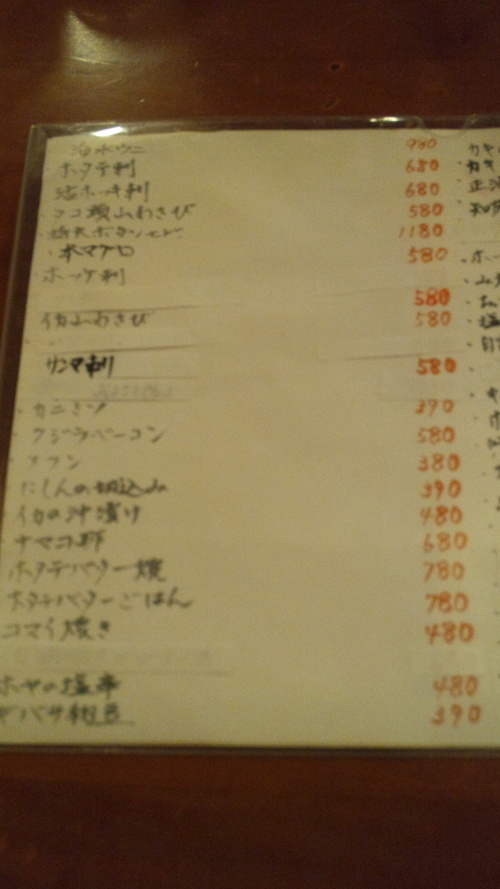 海水ウニ 980
ホタテ刺 680
活ホッキ刺 680
タコ頭山わさび 580
1180
本マグロ 580
ホッケ刺
580
イカ山わさび 580
サンマ刺 580
カニミソ 390
クジラベーコン 580
メフン 380
にしんの切込み 390
イカの沖漬け 480
ナマコ酢 680
ホタテバター焼 780
ホタテバターごはん 780
コマイ焼き 480
ホヤの塩辛 480
ギバサ 390